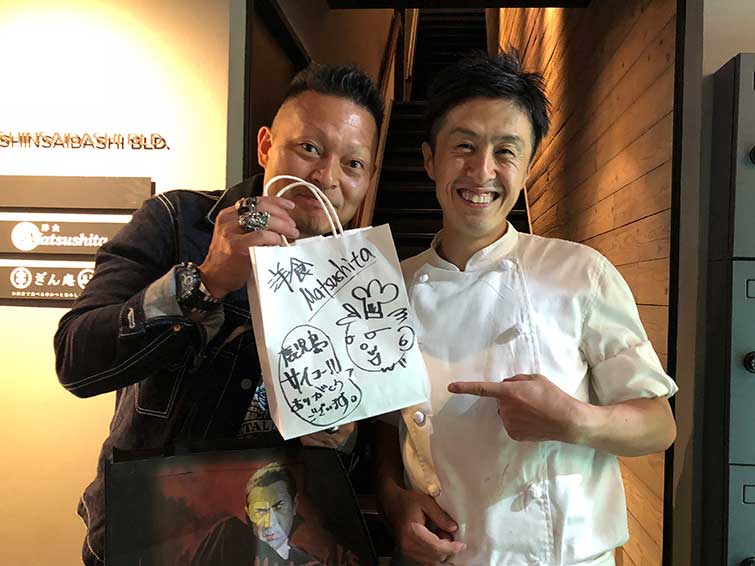 SHINSAIBASHI BLD.
洋食
Matsushita
ぎん庵
洋食
Matsushita
鹿児島
サイコー!!
ありがとう
ございます。